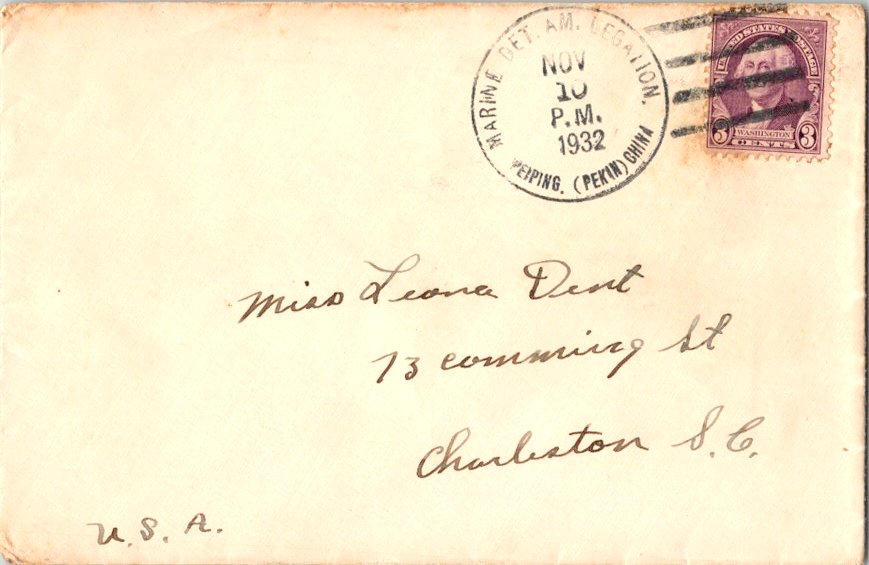 MARINE DET. AM. LEGATION.
NOV
10
P.M.
1932
PEIPING. (PEKIN) CHINA
UNITED STATES POSTAGE
3 WASHINGTON 3
CENTS
Miss Leona Dent
73 comming St
Charleston S.C.
U.S.A.